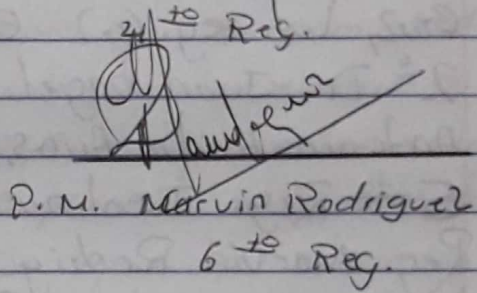 4 to Reg.
P. M. Marvin Rodriguez
6 to Reg.